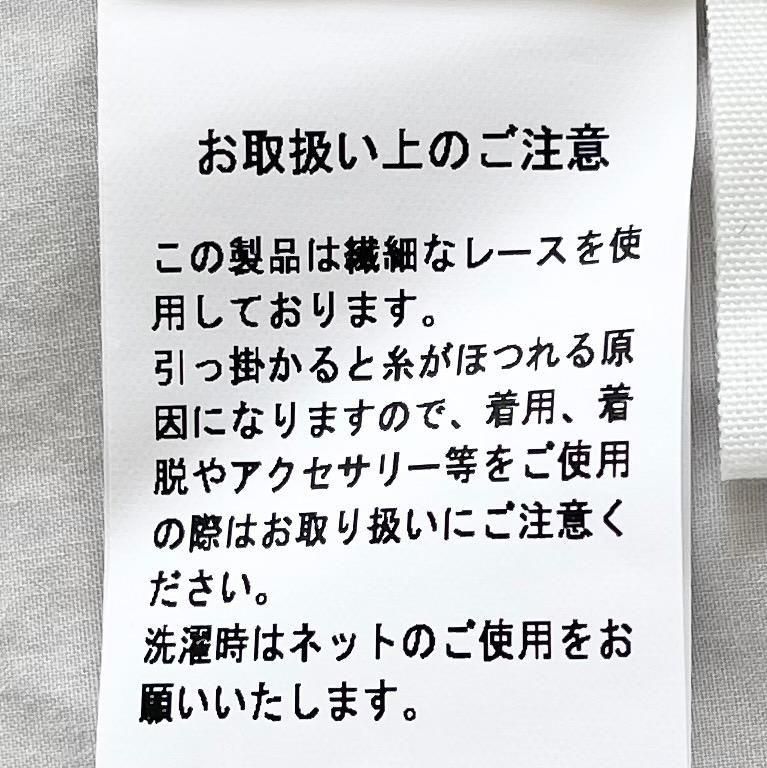 お取扱い上のご注意
この製品は繊細なレースを使
用しております。
引っ掛かると糸がほつれる原
因になりますので、着用、着
脱やアクセサリー等をご使用
の際はお取り扱いにご注意く
ださい。
洗濯時はネットのご使用をお
願いいたします。